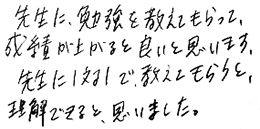 先生に、勉強を教えてもらって、
成績が上がると良いと思います。
先生に1対1で、教えてもらうと、
理解できると、思いました。